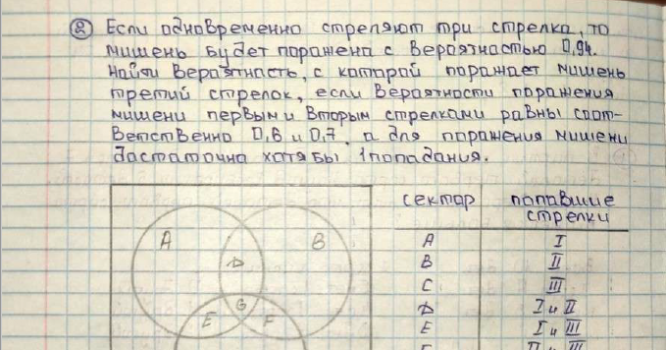 ② Если одновременно стреляют три стрелка, то
мишень будет поражена с вероятностью 0,94.
Найти вероятность, с которой поражает мишень
третий стрелок, если вероятности поражения
мишени первым и вторым стрелками равны соот-
ветственно 0,6 и 0,7, а для поражения мишени
достаточно хотя бы 1 попадания.
сектор попавшие
стрелки
A I
B II
C III
D I и II
E I и III
F II и III
A
B
D
G
E
F